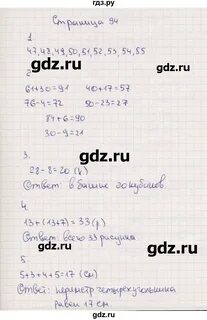 Страница 94
1
47,48,49,50,51,52,53,54,55
2
61+30=91 40+17=57
76-4=72 50-23=27
84+6=90
30-9=21
3.
28-8=20 (к.)
Ответ: в башне 20 кубиков.
4.
13+(13+7)=33 (р.)
Ответ: всего 33 рисунка
5
5+3+4+5=17 (см)
Ответ: периметр четырёхугольника
равен 17 см
gdz.ru
gdz.ru
gdz.ru
gdz.ru
gdz.ru
gdz.ru